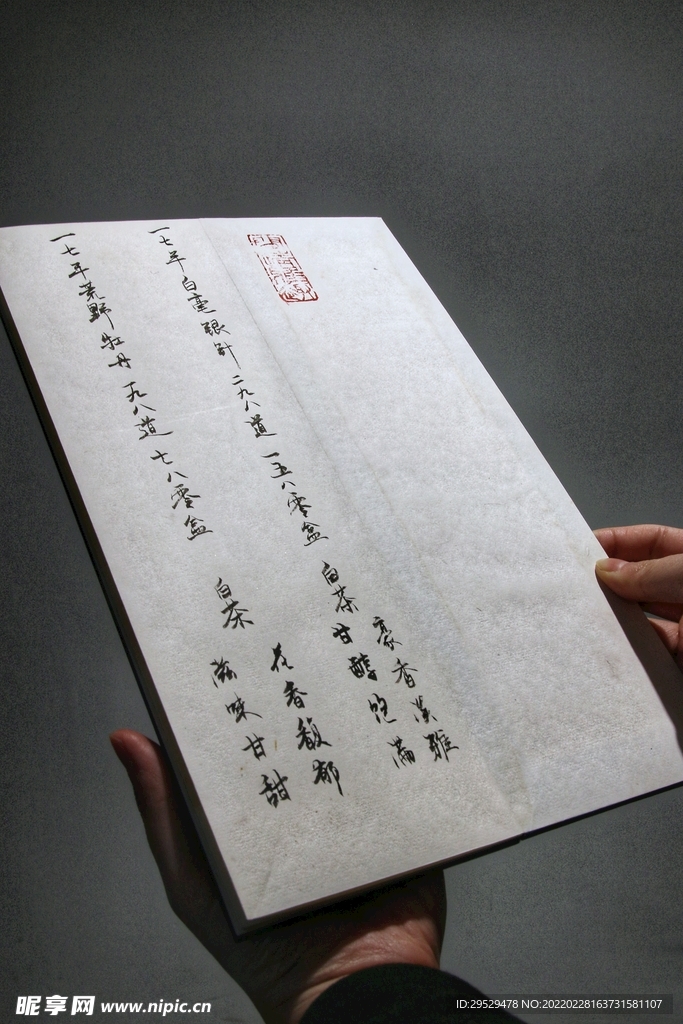 一七年白毫银针 二九八道 一五八零盒
白茶
毫香淡雅
甘醇饱满
一七年荒野牡丹 一九八道 七八零盒
白茶
花香馥郁
滋味甘甜
昵享网 www.nipic.cn
ID:29529478 NO:20220228163731581107